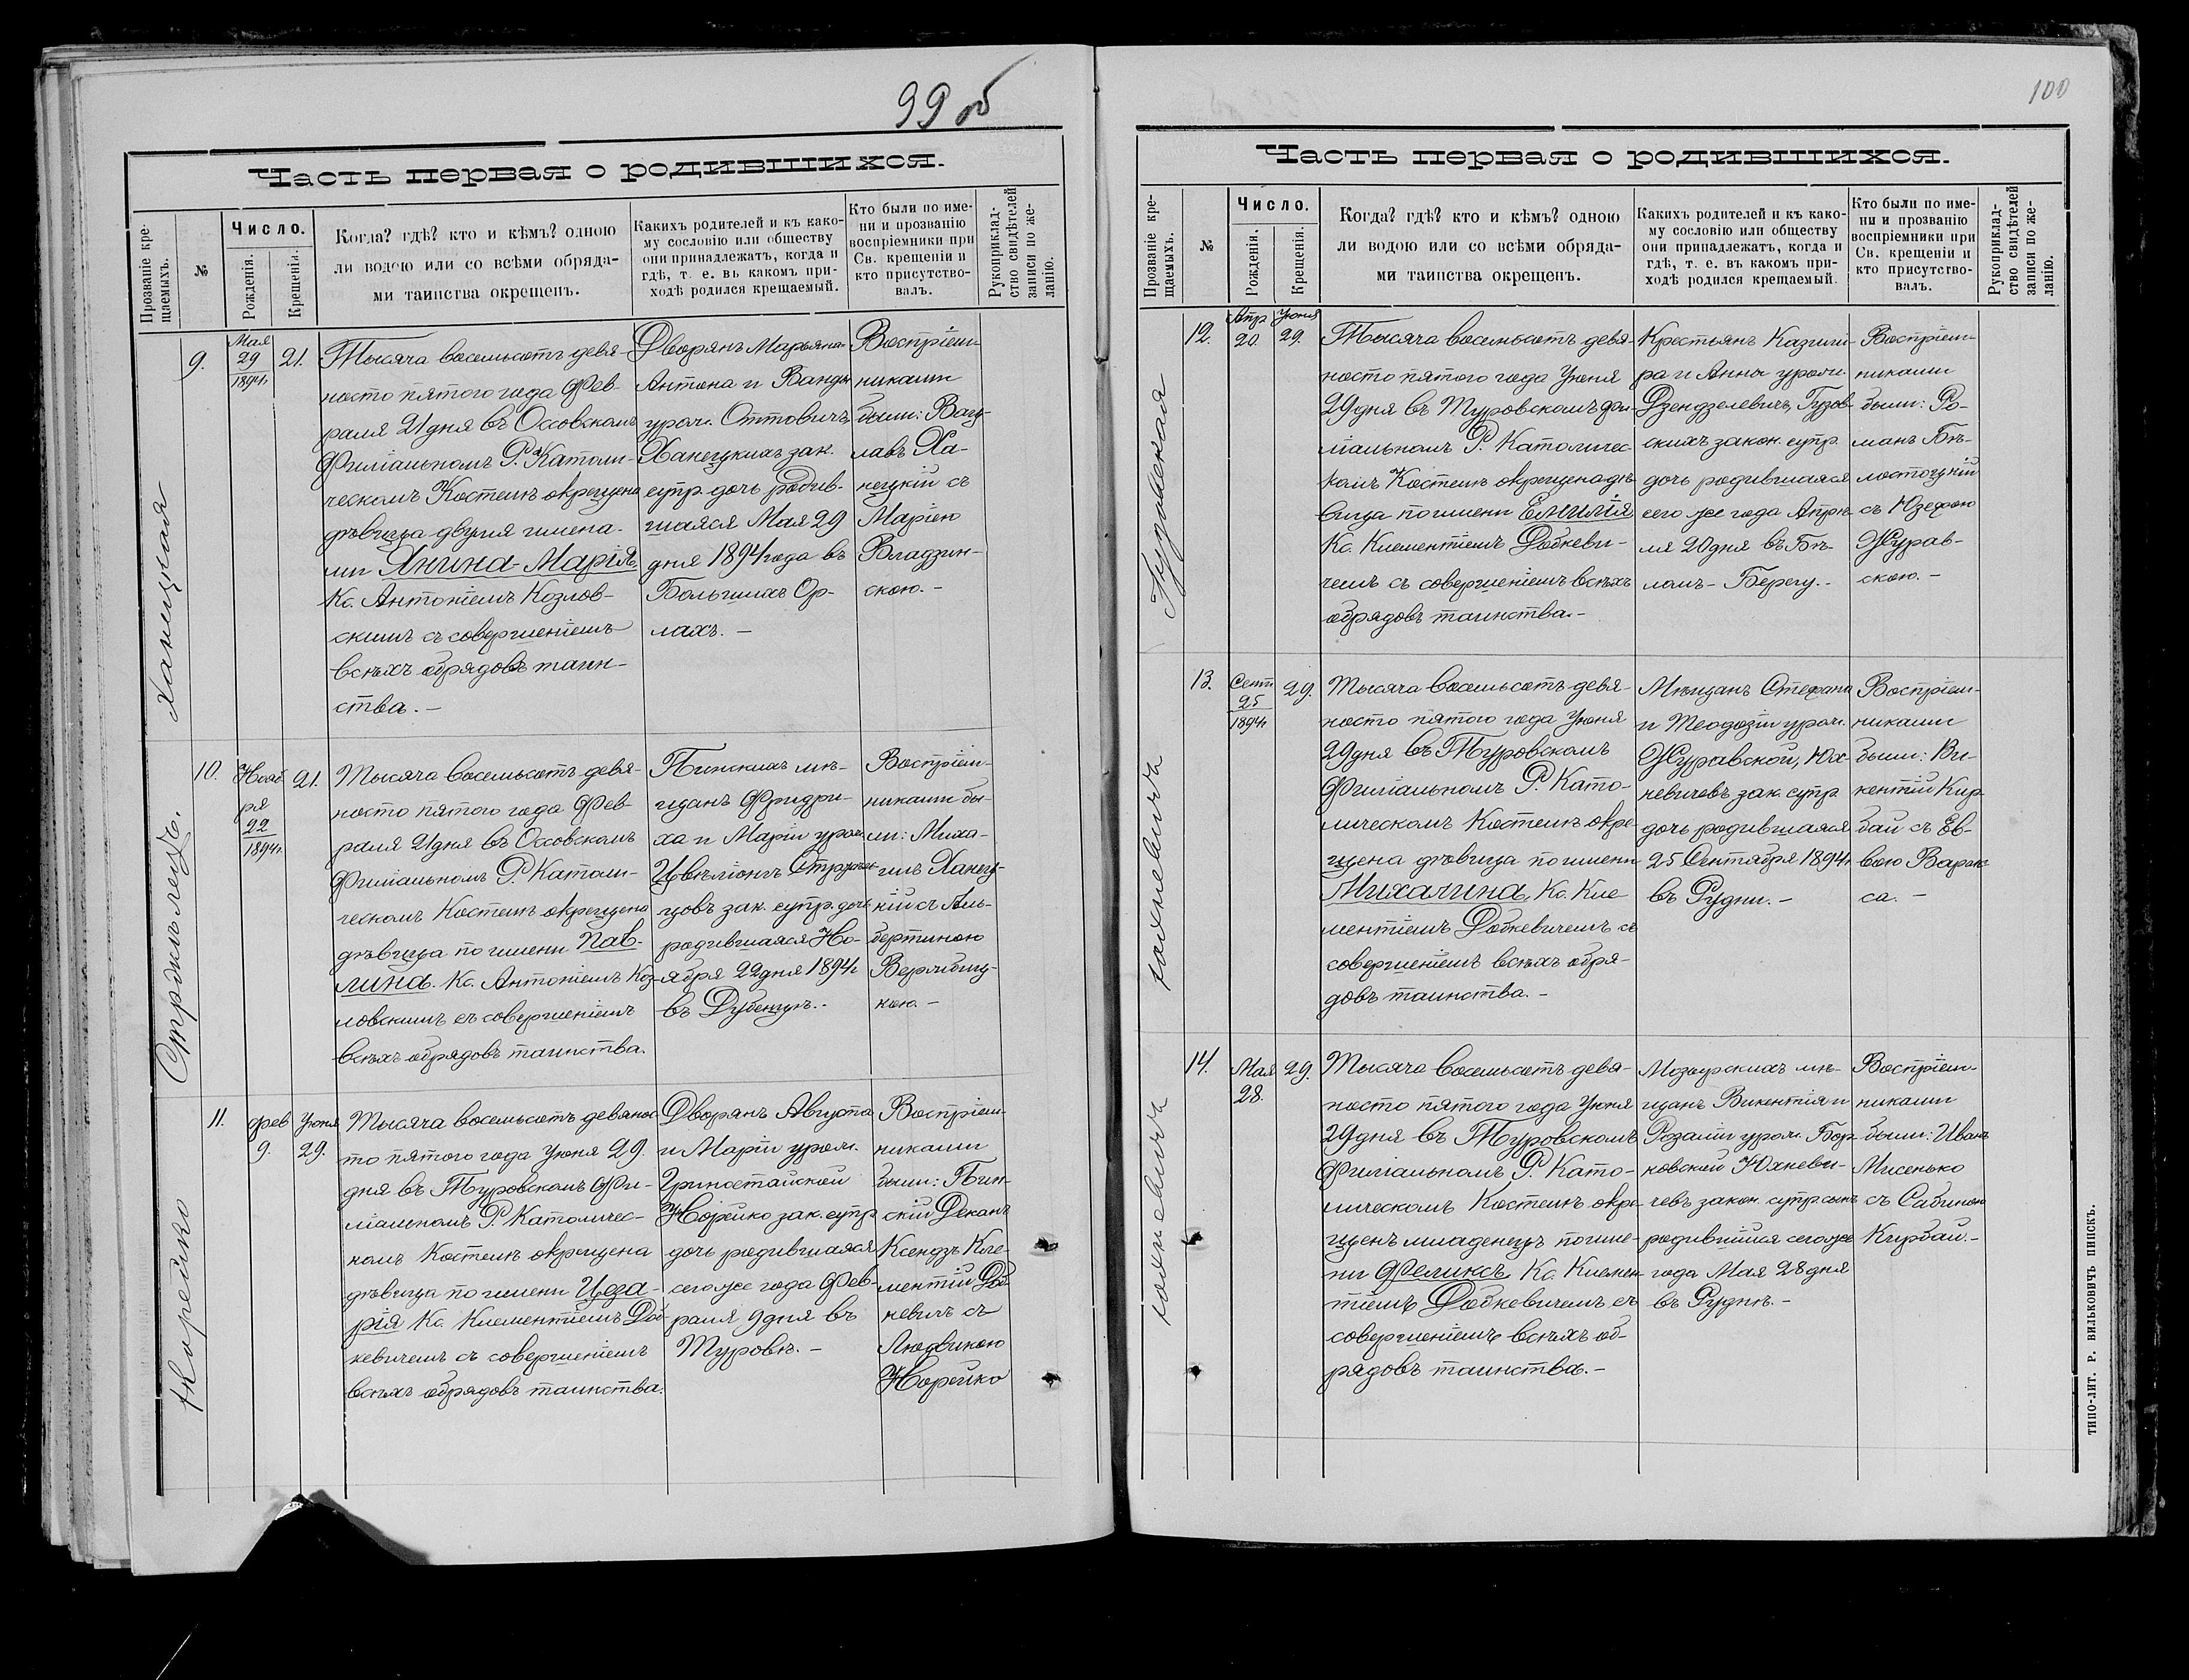 99 об
Часть первая о родившихся.
Прозваніе кре-
щаемыхъ.
№
Число.
Рожденія.
Крещенія.
Когда? гдѣ? кто и кѣмъ? одною
ли водою или со всѣми обряда-
ми таинства окрещенъ.
Какихъ родителей и къ како-
му сословію или обществу
они принадлежатъ, когда и
гдѣ, т. е. въ какомъ при-
ходѣ родился крещаемый.
Кто были по име-
ни и прозванію
воспріемники при
Св. крещеніи и
кто присутство-
валъ.
Рукоприклад-
ство свидѣтелей
записи по же-
ланію.
Ханецкая
9.
Мая
29
1894г.
21.
Тысяча восемьсотъ девя-
носто пятого года Фев-
раля 21 дня въ Оссовскомъ
Филіальномъ Р. Католи-
ческомъ Костелѣ окрещена
дѣвица двумя имена-
ми Янина-Марія
Кс. Антоніемъ Козлов-
скимъ съ совершеніемъ
всѣхъ обрядовъ таин-
ства. –
Дворянъ Марьяна-
Антона и Ванды
урожд. Оттовичъ
Ханецкихъ зак.
супр. дочь родив-
шаяся Мая 29
дня 1894 года въ
Большихъ Ор-
лахъ. –
Воспріем-
никами
были: Вац-
лавъ Ха-
нецкій съ
Маріею
Владзин-
скою. –
10.
Нояб
ря
22
1894г.
21.
Тысяча восемьсотъ девя-
носто пятого года Фев-
раля 21 дня въ Оссовскомъ
Филіальномъ Р. Католи-
ческомъ Костелѣ окрещена
дѣвица по имени Пав-
лина. Кс. Антоніемъ Коз-
ловскимъ съ совершеніемъ
всѣхъ обрядовъ таинства.
Пинскихъ мѣ-
щанъ Фридри-
ха и Маріи урож
зак. супр. дочь
родившаяся Но-
ября 22 дня 1894г.
въ Дубенцѣ. –
Воспріем-
никами бы-
ли: Миха-
илъ Ханец-
кій съ Аль-
бертиною
кою. –
Норейко
11.
Фев
9.
Іюня
29.
Тысяча восемьсотъ девянос-
то пятого года Іюня 29.
дня въ Туровскомъ Фи-
ліальномъ Р. Католичес-
комъ Костелѣ окрещена
дѣвица по имени Цеза-
рія Кс. Клементіемъ Доб-
кевичемъ съ совершеніемъ
всѣхъ обрядовъ таинства.
Дворянъ Августа
и Маріи урож.
Норейко зак. супр.
дочь родившаяся
сего же года Фев-
раля 9 дня въ
Туровѣ. –
Воспріем-
никами
были: Пин-
скій Деканъ
Ксендзъ Кле-
ментій Доб
кевичъ съ
Людвикою
Норейко
100
Часть первая о родившихся.
Прозваніе кре-
щаемыхъ.
№
Число.
Рожденія.
Крещенія.
Когда? гдѣ? кто и кѣмъ? одною
ли водою или со всѣми обряда-
ми таинства окрещенъ.
Какихъ родителей и къ како-
му сословію или обществу
они принадлежатъ, когда и
гдѣ, т. е. въ какомъ при-
ходѣ родился крещаемый.
Кто были по име-
ни и прозванію
воспріемники при
Св. крещеніи и
кто присутство-
валъ.
Рукоприклад-
ство свидѣтелей
записи по же-
ланію.
12.
Апр
20.
Іюня
29.
Тысяча восемьсотъ девя-
носто пятого года Іюня
29 дня въ Туровскомъ Фи-
ліальномъ Р. Католичес-
комъ Костелѣ окрещена дѣ-
вица по имени Емилія
Кс. Клементіемъ Добкеви-
чемъ съ совершеніемъ всѣхъ
обрядовъ таинства. –
Крестьянъ Казими-
ра и Анны урожд.
Дзендзелевичъ, Гузов-
скихъ закон. супр.
дочь родившаяся
сего же года Апрѣ-
ля 20 дня въ Бѣ-
ломъ-Берегу. –
Воспріем-
никами
были: Ро-
манъ Бѣ-
лостоцкій
съ Юзефою
Журав-
скою. –
Юхневичъ
13.
Сент
25
1894г.
29.
Тысяча восемьсотъ девя-
носто пятого года Іюня
29 дня въ Туровскомъ
Филіальномъ Р. Като-
лическомъ Костелѣ окре-
щена дѣвица по имени
Михалина, Кс. Кле
ментіемъ Добкевичемъ съ
совершеніемъ всѣхъ обря-
довъ таинства. –
Мѣщанъ Стефана
и Теодозіи урож.
Журавской, Юх-
невичевъ зак. супр.
дочь родившаяся
25 Сентября 1894г.
въ Рудни. –
Воспріем-
никами
были: Ви-
кентій Кир-
бай съ Ев-
вою Варак-
са. –
Юхневичъ
14.
Мая
28.
29.
Тысяча восемьсотъ девя-
носто пятого года Іюня
29 дня въ Туровскомъ
Филіальномъ Р. Като-
лическомъ Костелѣ окре-
щенъ младенецъ по име-
ни Феликсъ Кс. Клемен
тіемъ Добкевичемъ съ
совершеніемъ всѣхъ об-
рядовъ таинства. –
Мозырскихъ мѣ-
щанъ Викентія и
Розаліи урож. Бор-
ковской Юхневи-
чевъ закон. супр. сынъ
родившійся сего же
года Мая 28 дня
въ Руднѣ. –
Воспріем-
никами
были: Иванъ
Мисенько
съ Сабиною
Кирбай. –
ТИПО-ЛИТ. Р. ВИЛЬКОВИЧЪ ПИНСКЪ.